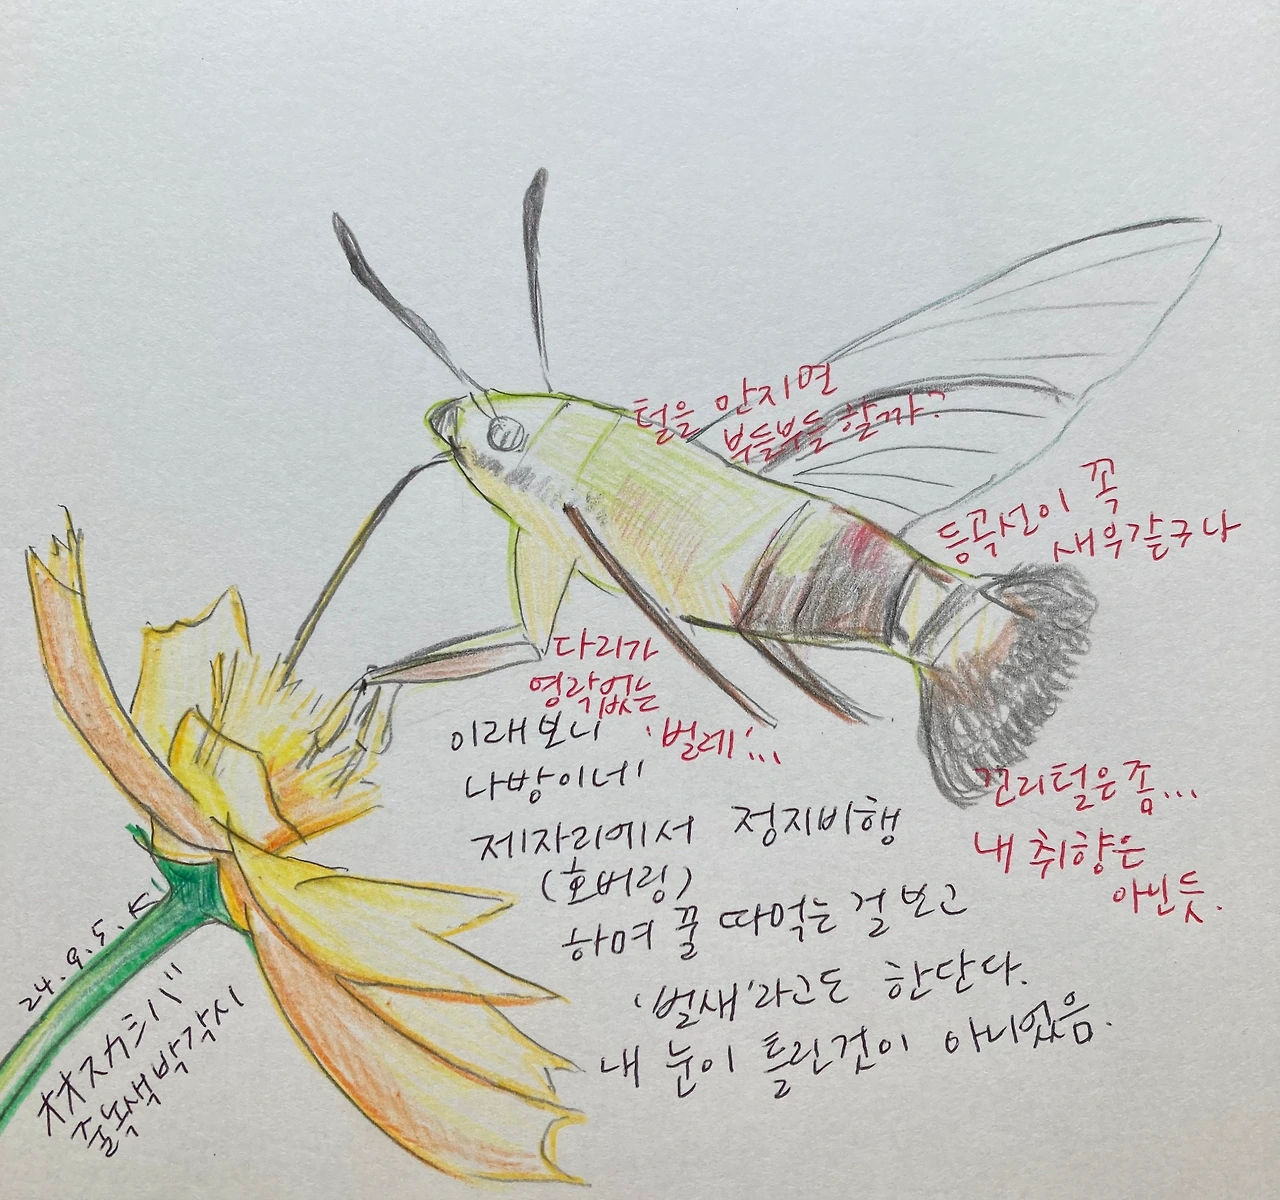 털을 만지면
부들부들 할까?
등곡선이 꼭
새우같구나
다리가
영락없는
'벌레'...
이래보니
나방이네!
꼬리털은 좀...
내 취향은
아닌듯.
제자리에서 정지비행
(호버링)
하며 꿀 따먹는 걸 보고
'벌새'라고도 한단다.
내 눈이 틀린것이 아니었음.
24.9.5.K
オオスカシバ
줄녹색박각시